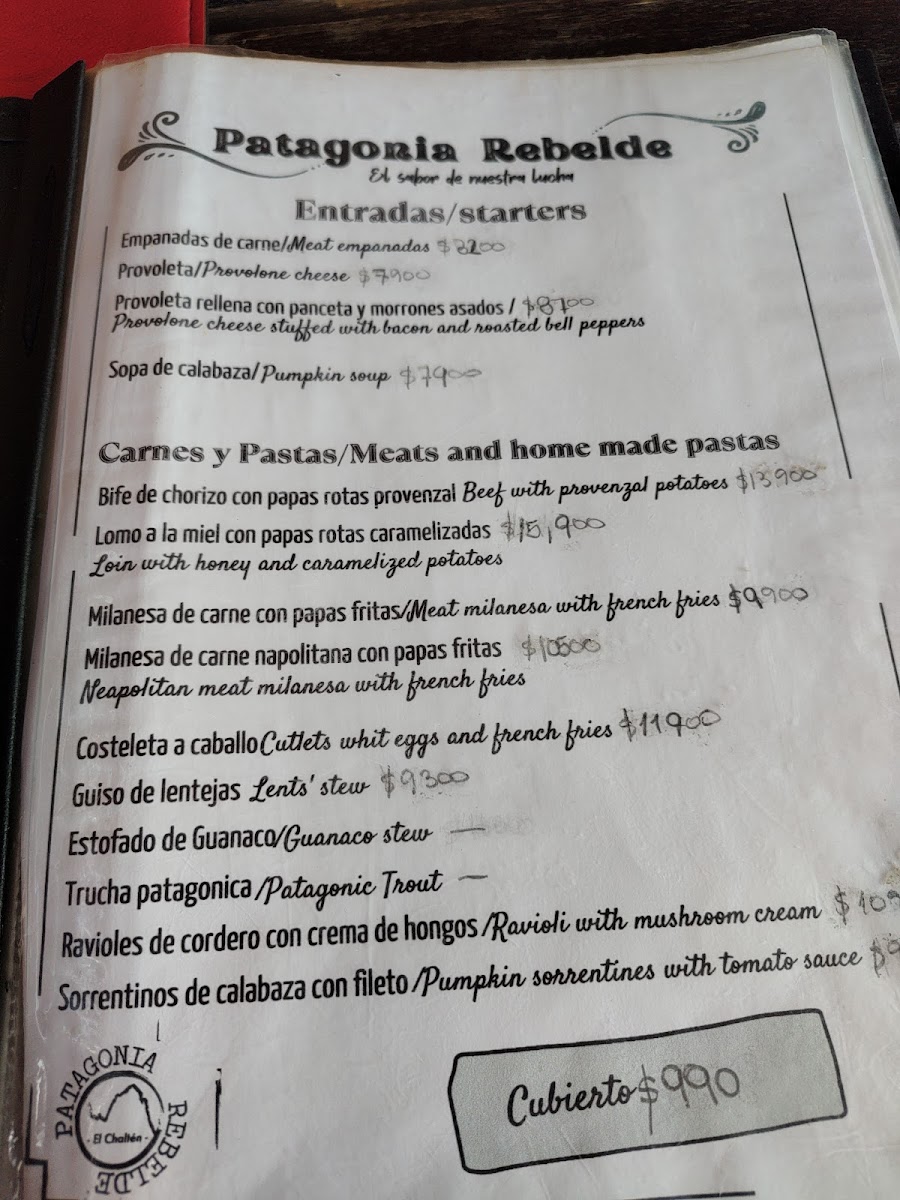 Patagonia Rebelde
El sabor de nuestra lucha
Entradas/starters
Empanadas de carne/Meat empanadas $3200
Provoleta/Provolone cheese $7900
Provoleta rellena con panceta y morrones asados / $8700
Provolone cheese stuffed with bacon and roasted bell peppers
Sopa de calabaza/Pumpkin soup $7900
Carnes y Pastas/Meats and home made pastas
Bife de chorizo con papas rotas provenzal Beef with provenzal potatoes $13900
Lomo a la miel con papas rotas caramelizadas $15,900
Loin with honey and caramelized potatoes
Milanesa de carne con papas fritas/Meat milanesa with french fries $9900
Milanesa de carne napolitana con papas fritas $10500
Neapolitan meat milanesa with french fries
Costeleta a caballo Cutlets whit eggs and french fries $11900
Guiso de lentejas Lents' stew $9300
Estofado de Guanaco/Guanaco stew —
Trucha patagonica /Patagonic Trout —
Ravioles de cordero con crema de hongos /Ravioli with mushroom cream
Sorrentinos de calabaza con fileto /Pumpkin sorrentines with tomato sauce
Cubierto $990
PATAGONIA REBELDE
- El Chaltén -